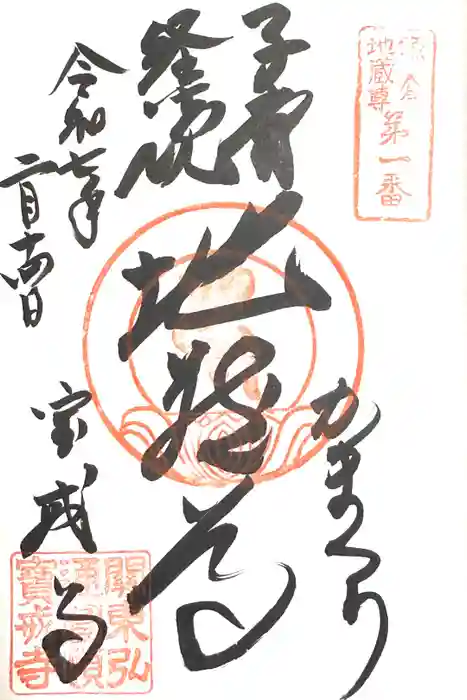 鎌倉
地蔵尊第一番
かまくら
子育
経読
地蔵尊
令和七年
二月十四日
宝戒寺
關東弘
通圓頓
寶戒寺